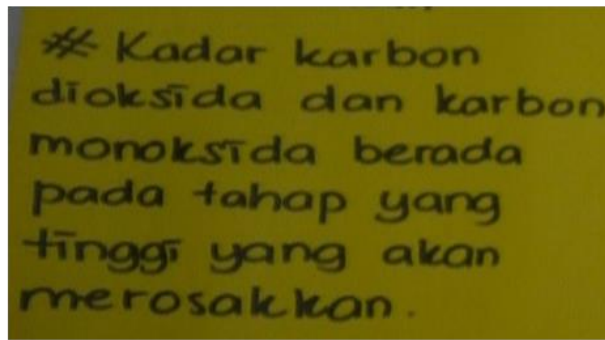 # Kadar karbon
dioksida dan karbon
monoksida berada
pada tahap yang
tinggi yang akan
merosakkan.